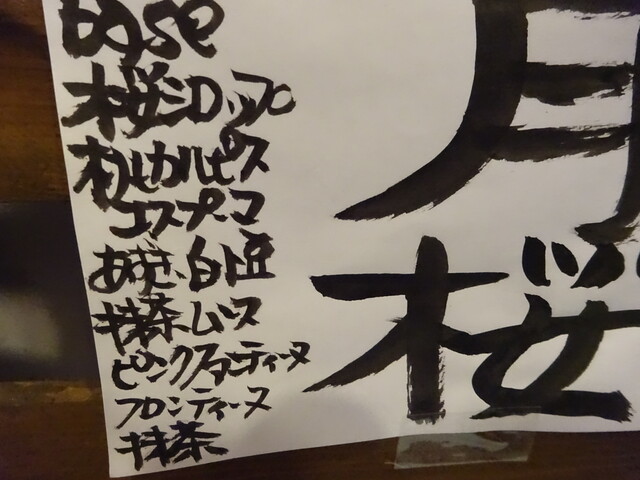 base
桜シロップ
カルピス
エスプーマ
あずき、白豆
抹茶ムース
ピンクファンティーヌ
フロンティーヌ
抹茶
月
桜